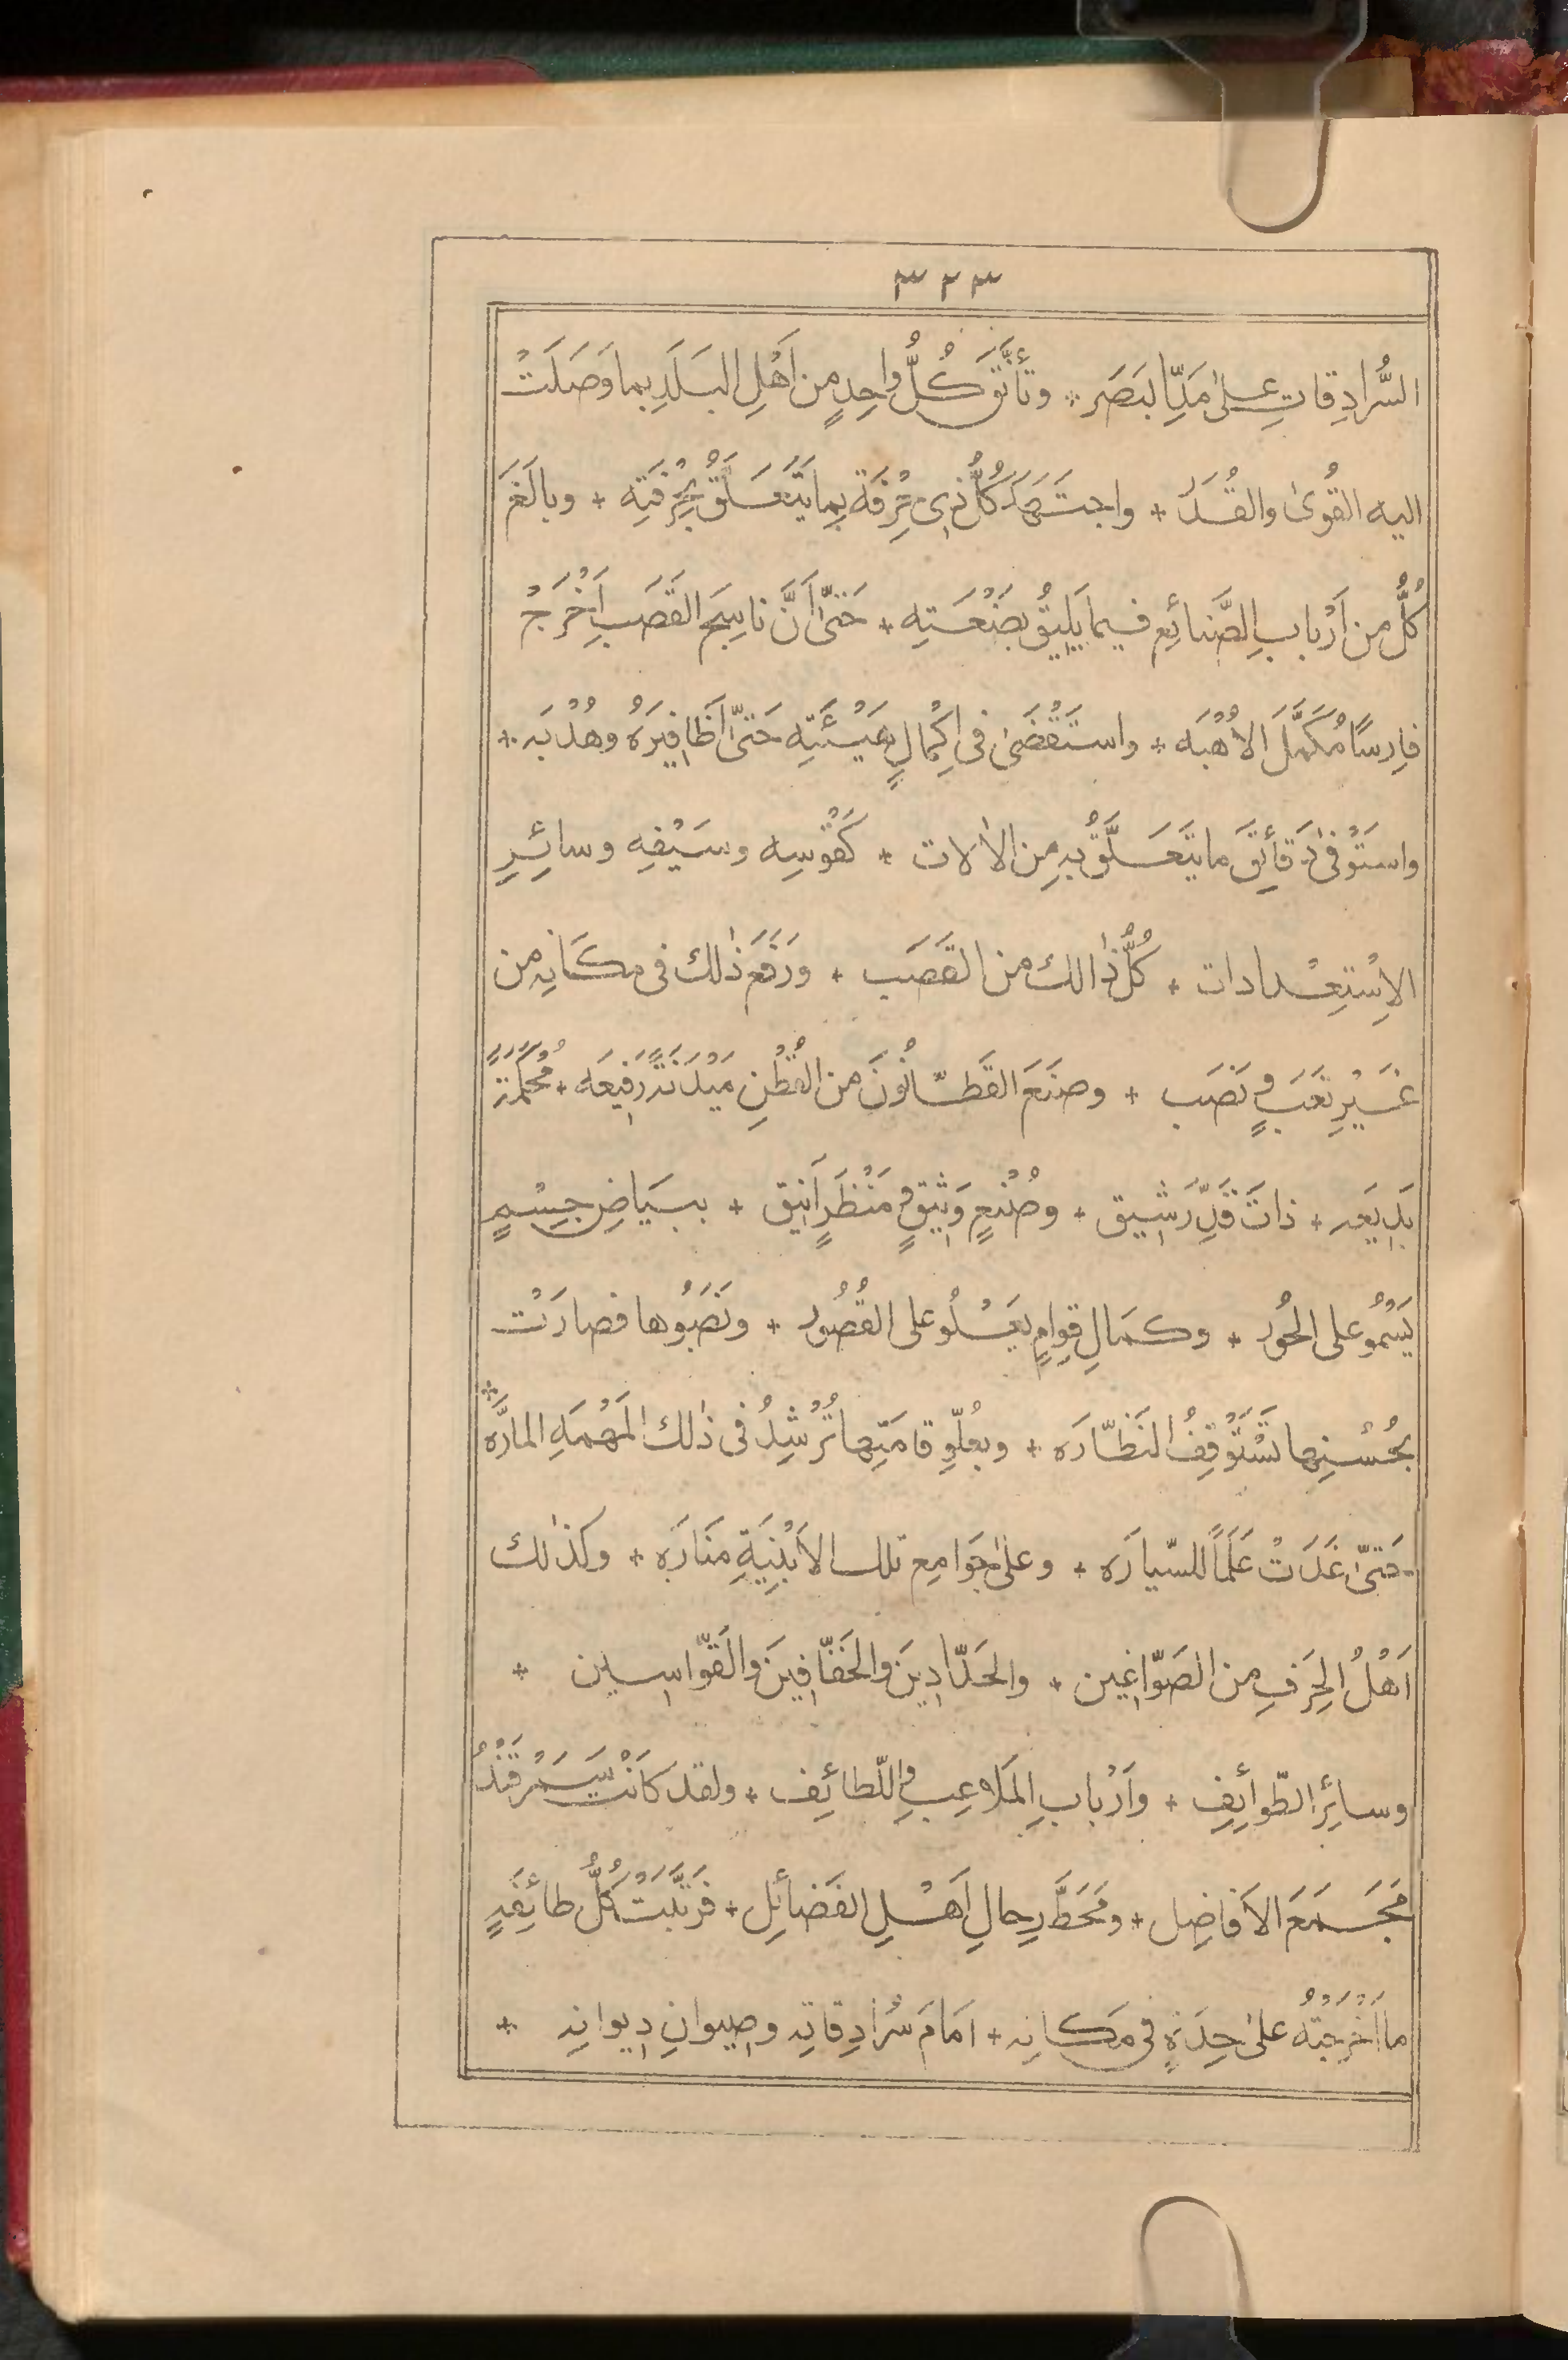 ٣٢٣
السُّرادِقاتِ على مَدِّ البَصَر * وتأنَّقَ كُلُّ واحِدٍ مِن اَهْلِ البَلَدِ بِما وَصَلَتْ
اليه القُوىٰ والقُدَر * واجتَهَدَ كُلُّ ذِى حِرْفَةٍ بِما يَتَعَلَّقُ بِحِرْفَتِه * وبالَغَ
كُلٌّ من اَرْبابِ الصَّنائِعِ فيما يَلِيقُ بِصَنْعَتِه * حَتىّٰ اَنَّ ناسِجَ القَصَبِ اَخْرَجَ
فارِسًا مُكَمَّلَ الاُهْبَه * واستَقْصَىٰ فى اِكْمالِ هَيْئَتِه حَتىّٰ اَظافِيرَهُ وهُدْبَه *
واستَوْفىٰ دَقائِقَ ما يَتَعَلَّقُ بِه مِن الاٰلات * كَقَوْسِه وسَيْفِه وسائِرِ
الاِسْتِعْدادات * كُلُّ ذٰالك من القَصَب * ورَفَعَ ذٰلك فى مكَانِه من
غَيْرِ تَعَبٍ ونَصَب * وصَنَعَ القَطّانُونَ من القُطْنِ مَيْدَنَةً رَفِيعَه * مُحْكَمَةً
بَدِيعَه * ذاتَ قَدٍّ رَشِيق * وصُنْعٍ وَثِيقٍ ومَنْظَرٍ اَنِيق * بِبَياضِ جِسْمٍ
يَسْمُو على الحُور * وكَمالِ قِوامٍ يَعْلُو على القُصُور * ونَصَبُوها فصارَتْ
بِحُسْنِها تَسْتَوْقِفُ النَظّارَه * وبعُلُوِّ قامَتِها تُرْشِدُ فى ذٰلك المَهْمَهِ المارَّه *
حَتىّٰ غَدَتْ عَلَماً للسّيارَه * وعلىٰ جَوامِعِ تلك الاَبْنِيَةِ مَنَارَه * وكذٰلك
اَهْلُ الحِرَفِ من الصَوّاغِين * والحَدّادِينَ والخَفّافِينَ والقَوّاسِين *
وسائِرِ الطّوائِفِ * واَرْبابِ المَلاعِبِ واللّطائِف * ولقد كانَتْ سَمَرْقَنْدُ
مَجْمَعَ الاَفاضِل * ومَحَطَّ رِحالِ اَهْلِ الفَضائِل * فرَتَّبَتْ كُلُّ طائِفَةٍ
ما اَخْرَجَتْهُ علىٰ حِدَةٍ فى مَكانِه * اَمامَ سُرادِقاتِه وصِيوانِ دِيوانِه *